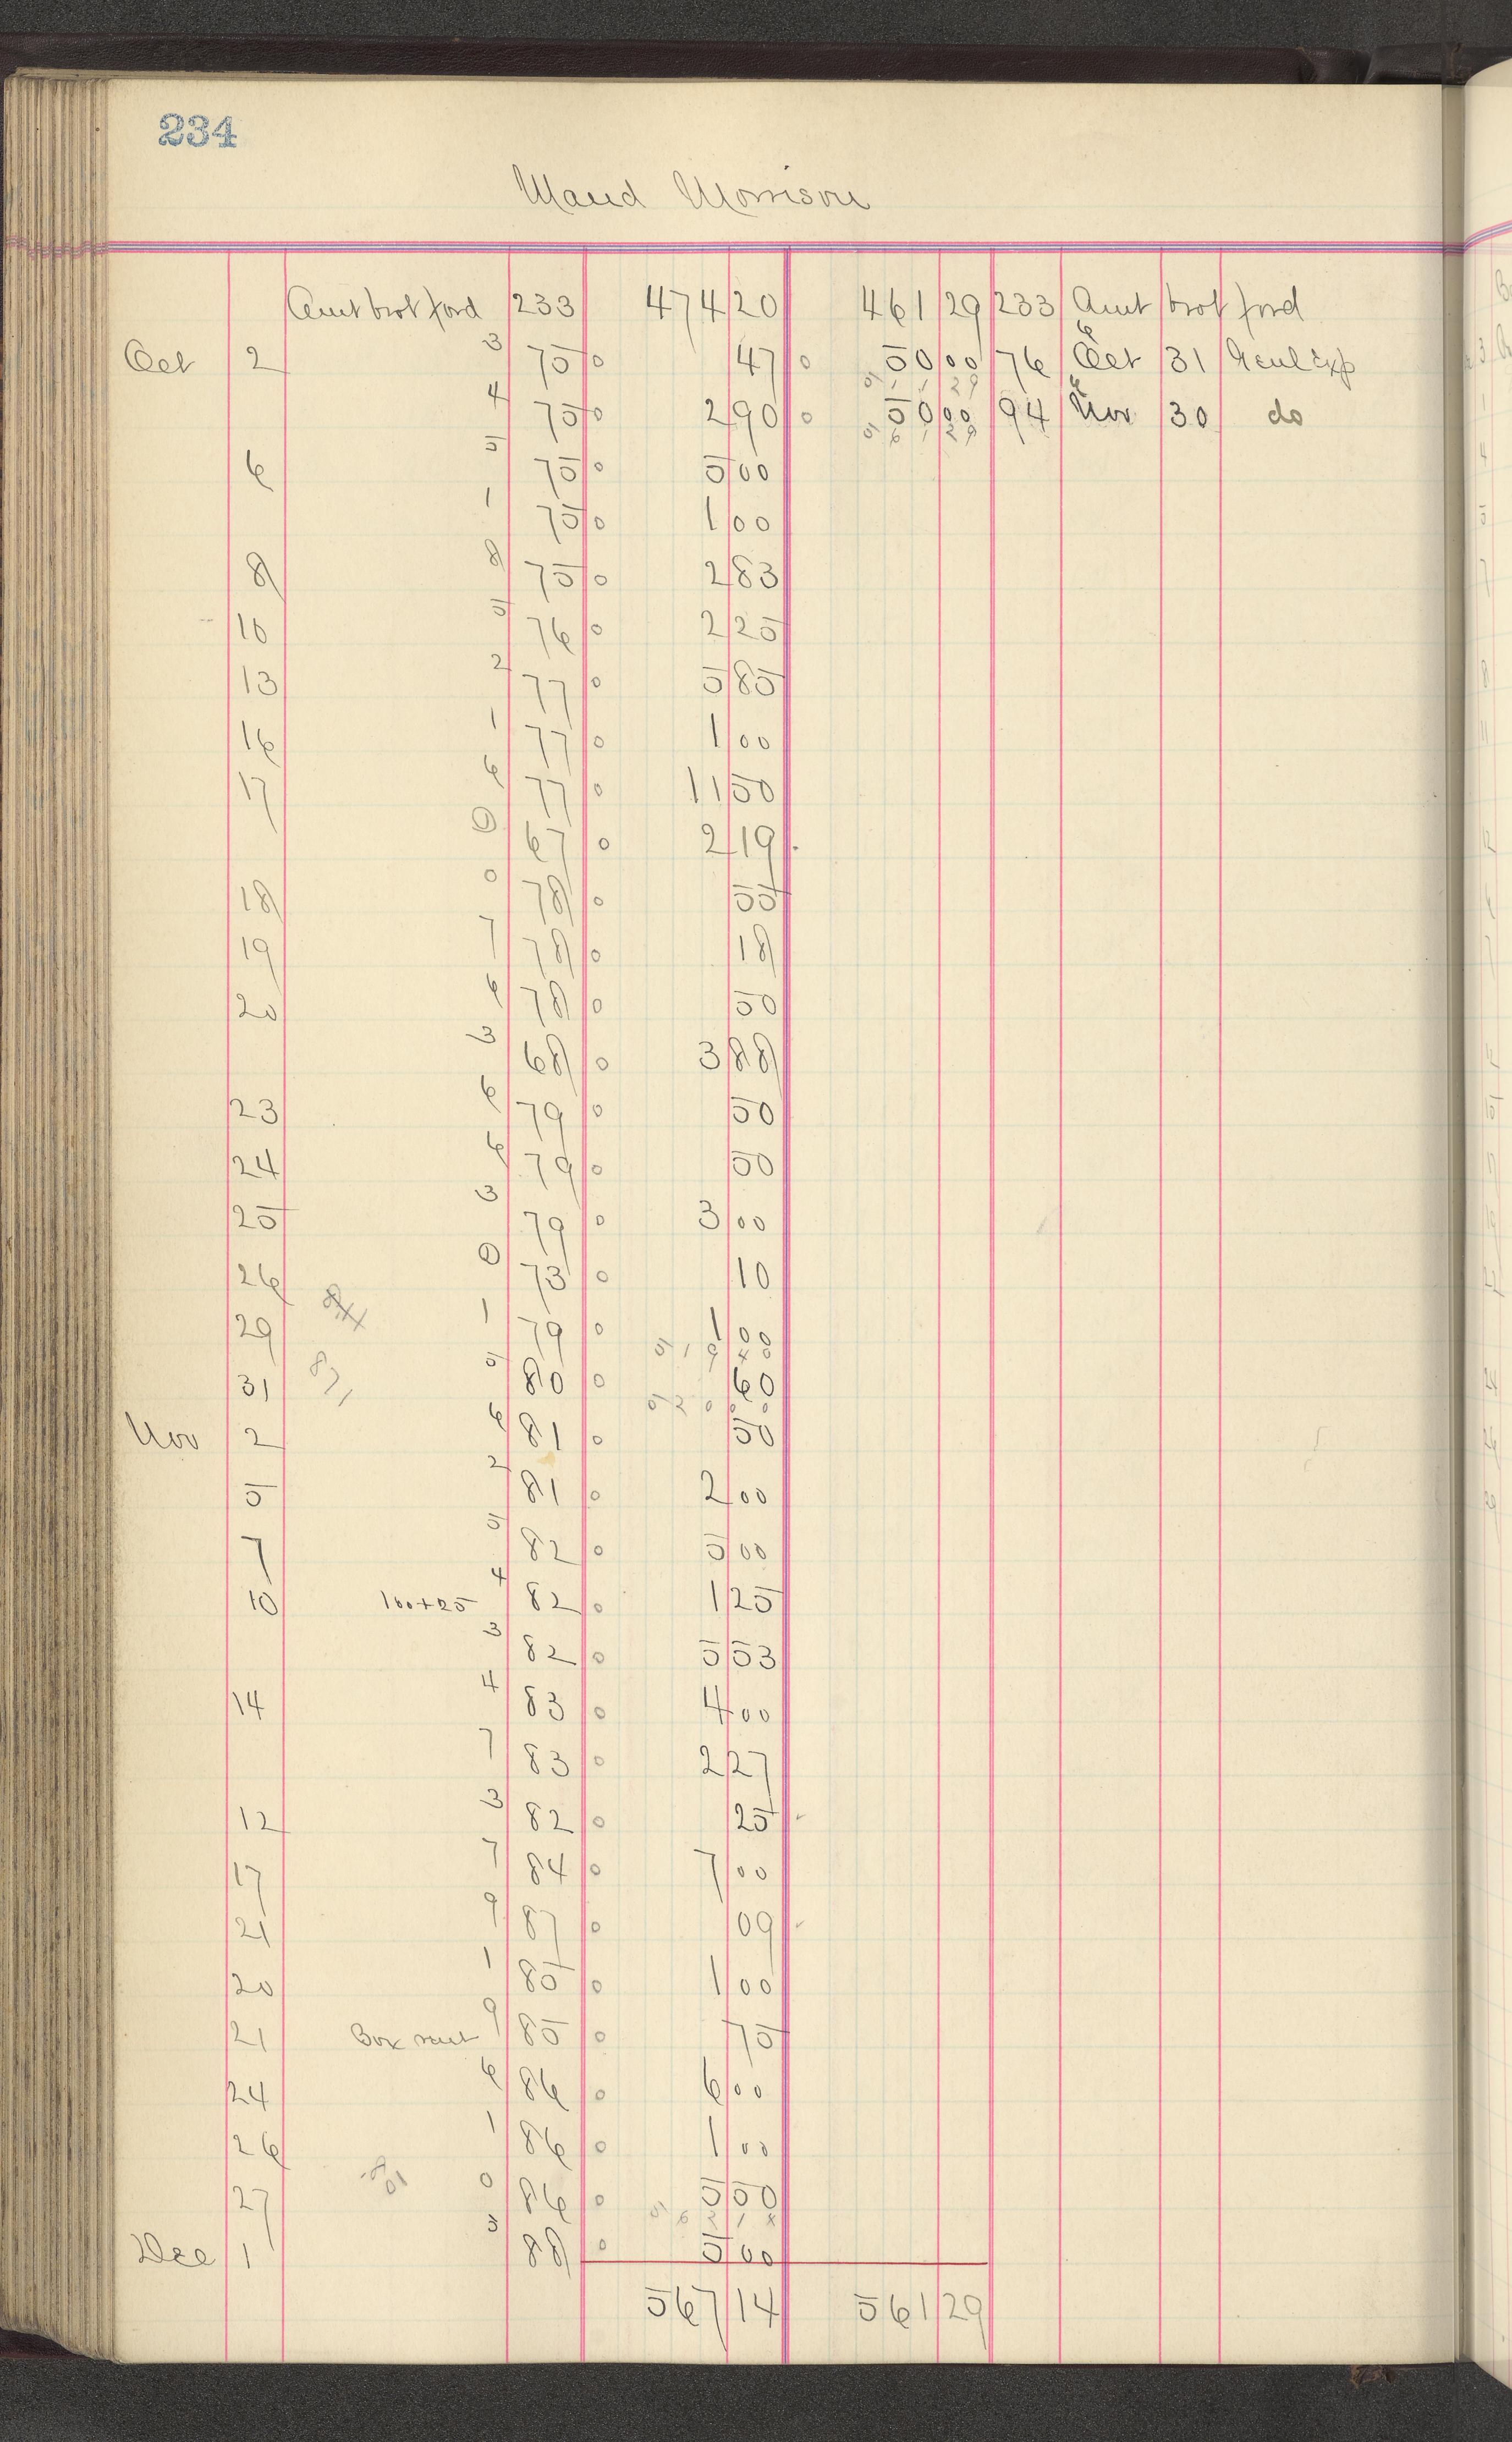 234
Maud Morrison
Amt brot ford 233 474 20 461 29 233 Amt brot ford
Oct 2 3/75 0 47 0 50 00 76 Oct 31 Genl Exp
5 1 1 29
4/75 0 2 90 0 50 00 94 Nov 30 do
5 6 1 29
6 5/75 0 5 00
1/75 0 1 00
8 8/75 0 2 83
10 5/76 0 2 25
13 2/77 0 5 85
16 1/77 0 1 00
17 6/77 0 11 50
0/67 0 2 19
18 0/78 0 55
19 7/78 0 18
20 6/78 0 50
3/68 0 3 88
23 6/79 0 50
24 6/79 0 50
25 3/79 0 3 00
26 0/73 0 10
29 1/79 0 1 00
31 5/80 0 60
Nov 2 6/81 0 50
5 2/81 0 2 00
7 5/82 0 5 00
10 100+25 4/82 0 1 25
3/82 0 5 53
14 4/83 0 4 00
7/83 0 2 27
12 3/82 0 25
17 7/84 0 7 00
21 9/87 0 09
20 1/85 0 1 00
21 Box rent 9/85 0 75
24 6/86 0 6 00
26 1/86 0 1 00
27 0/86 0 5 50
Dec 1 5/88 0 5 00
567 14 561 29